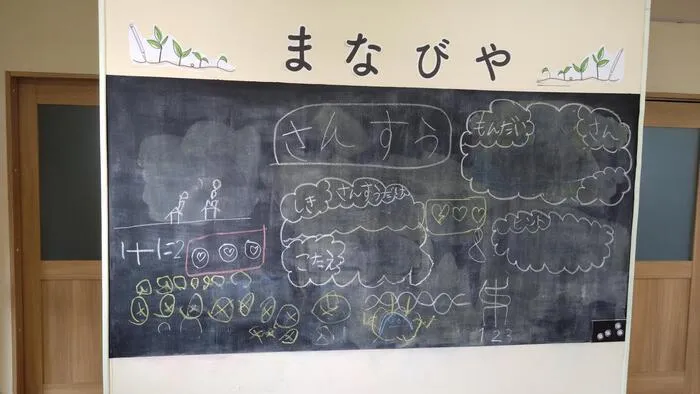 まなびや
さんすう
もんだい
さん
しき
さんすう
こたえ
ヒント
1+1=2
8
1 2 3